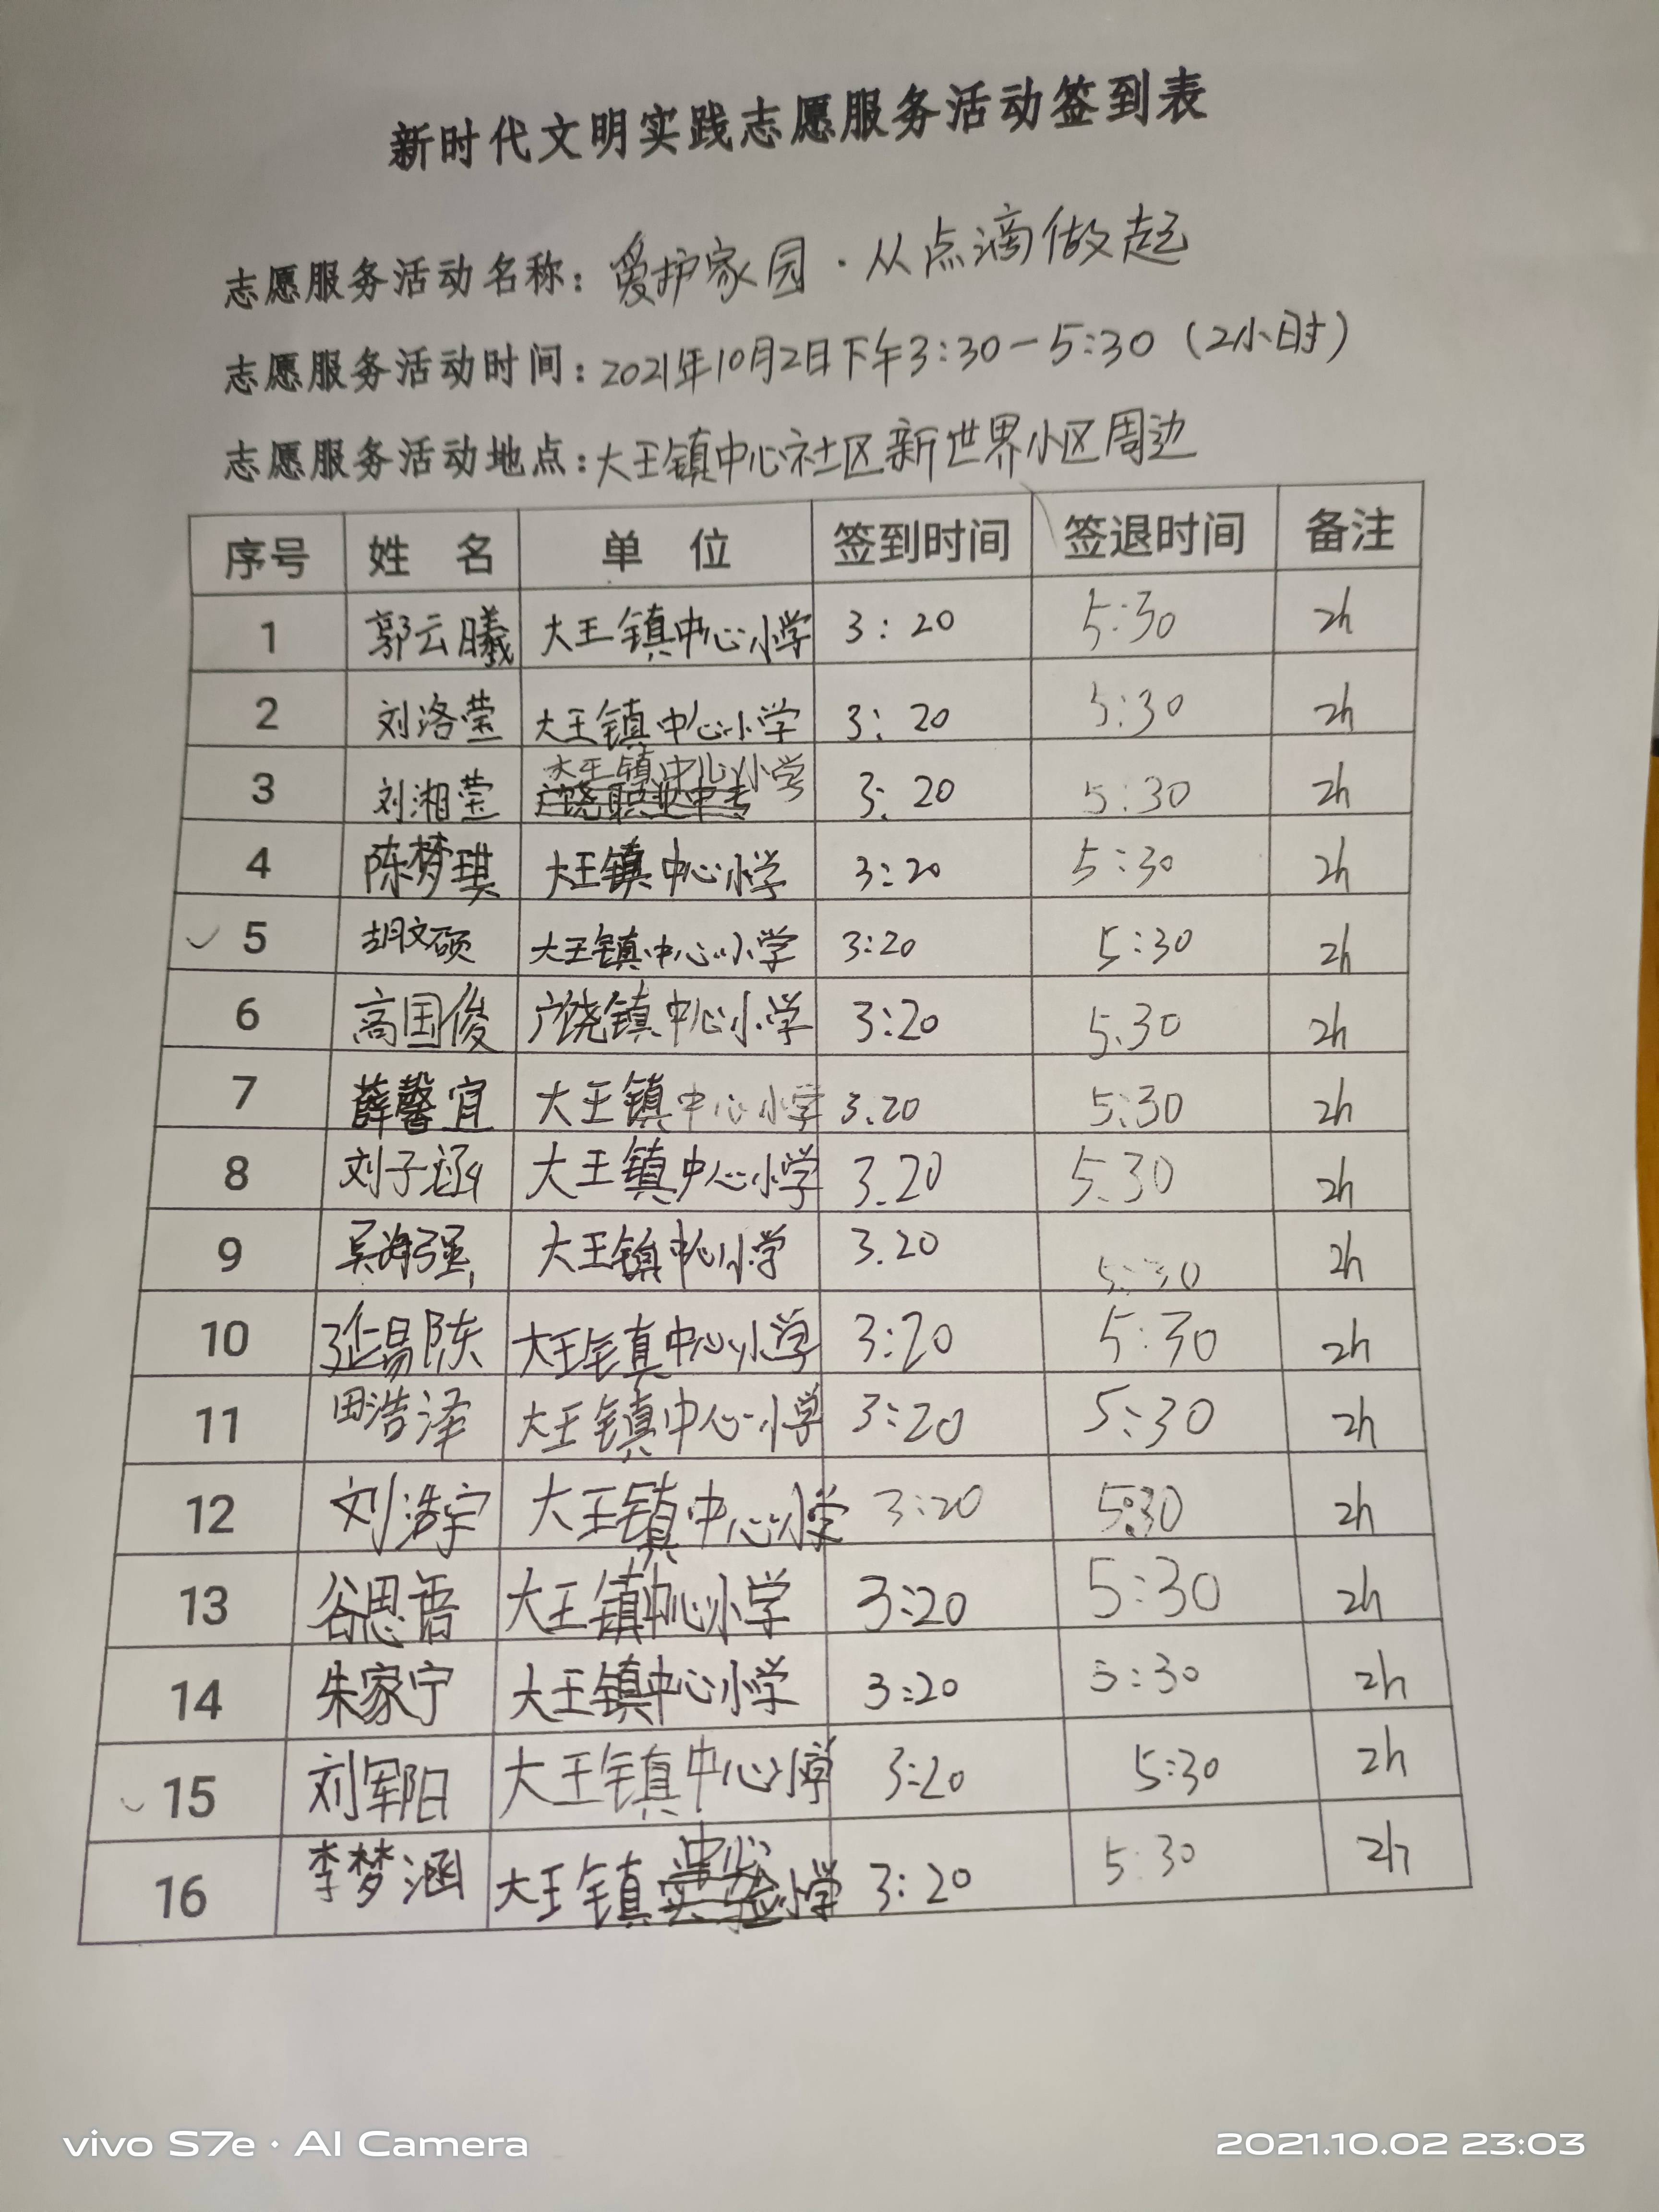 新时代文明实践志愿服务活动签到表
志愿服务活动名称：爱护家园·从点滴做起
志愿服务活动时间：2021年10月2日下午3:30-5:30（2小时）
志愿服务活动地点：大王镇中心社区新世界小区周边
序号 姓 名 单 位 签到时间 签退时间 备注
1 郭云曦 大王镇中心小学 3:20 5:30 2h
2 刘洛莹 大王镇中心小学 3:20 5:30 2h
3 刘湘莹 大王镇中心小学 3:20 5:30 2h
广饶职业中专
4 陈梦琪 大王镇中心小学 3:20 5:30 2h
5 胡文硕 大王镇中心小学 3:20 5:30 2h
6 高国俊 广饶镇中心小学 3:20 5:30 2h
7 薛馨宜 大王镇中心小学 3:20 5:30 2h
8 刘子涵 大王镇中心小学 3:20 5:30 2h
9 吴海强 大王镇中心小学 3:20 5:30 2h
10 大王镇中心小学 3:20 5:30 2h
11 田浩泽 大王镇中心小学 3:20 5:30 2h
12 刘浩宇 大王镇中心小学 3:20 5:30 2h
13 谷思语 大王镇中心小学 3:20 5:30 2h
14 朱家宁 大王镇中心小学 3:20 5:30 2h
15 刘军阳 大王镇中心小学 3:20 5:30 2h
16 李梦涵 大王镇中心小学 3:20 5:30 2h
vivo S7e · AI Camera
2021.10.02 23:03